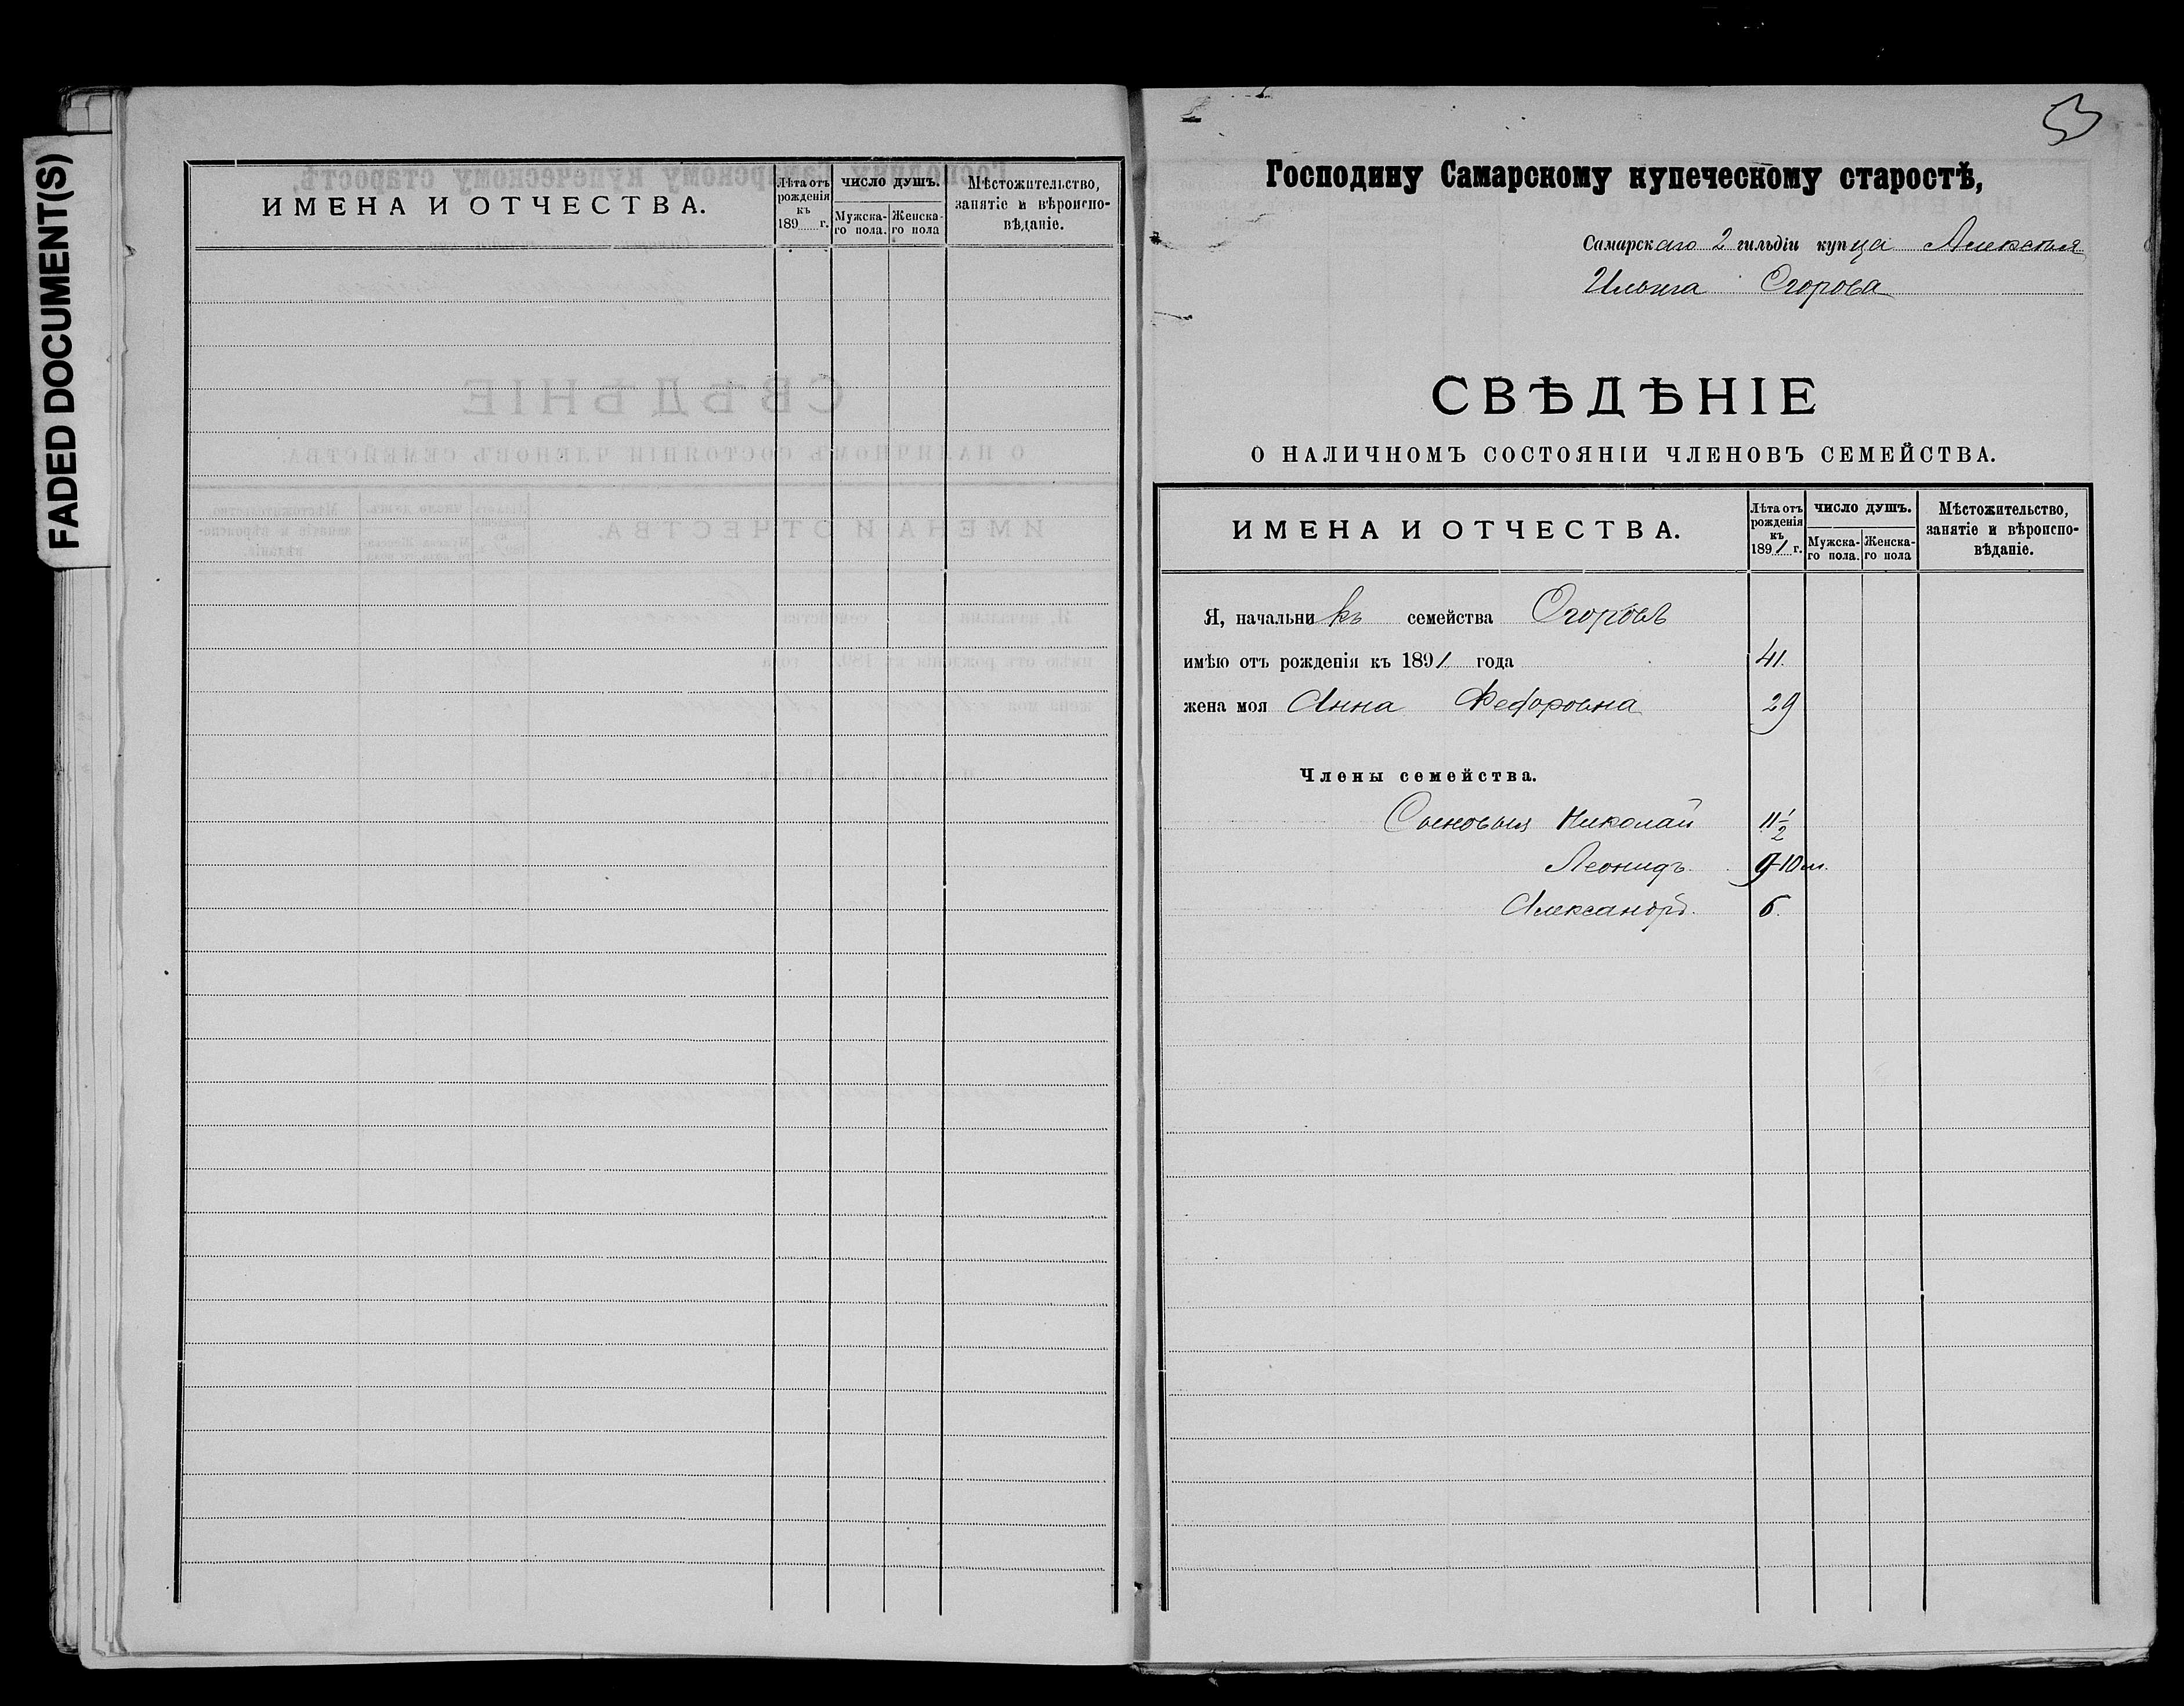 FADED DOCUMENT(S)
ИМЕНА И ОТЧЕСТВА.
Лѣта отъ рожденія къ 189 г.
ЧИСЛО ДУШЪ.
Мужска-го пола.
Женска-го пола
Мѣстожительство, занятіе и вѣроиспо-вѣданіе.
53
Господину Самарскому купеческому старостѣ,
Самарскаго 2 гильдіи купца Алексѣя
Ильина Егорова
СВѢДѢНІЕ
О НАЛИЧНОМЪ СОСТОЯНІИ ЧЛЕНОВЪ СЕМЕЙСТВА.
ИМЕНА И ОТЧЕСТВА.
Лѣта отъ рожденія къ 1891 г.
ЧИСЛО ДУШЪ.
Мужска-го пола.
Женска-го пола
Мѣстожительство, занятіе и вѣроиспо-вѣданіе.
Я, начальникъ семейства Егоровъ
имѣю отъ рожденія къ 1891 года 41.
жена моя Анна Федоровна 29
Члены семейства.
Сыновья Николай 11 1/2
Леонидъ. 9-10 м.
Александръ. 6.